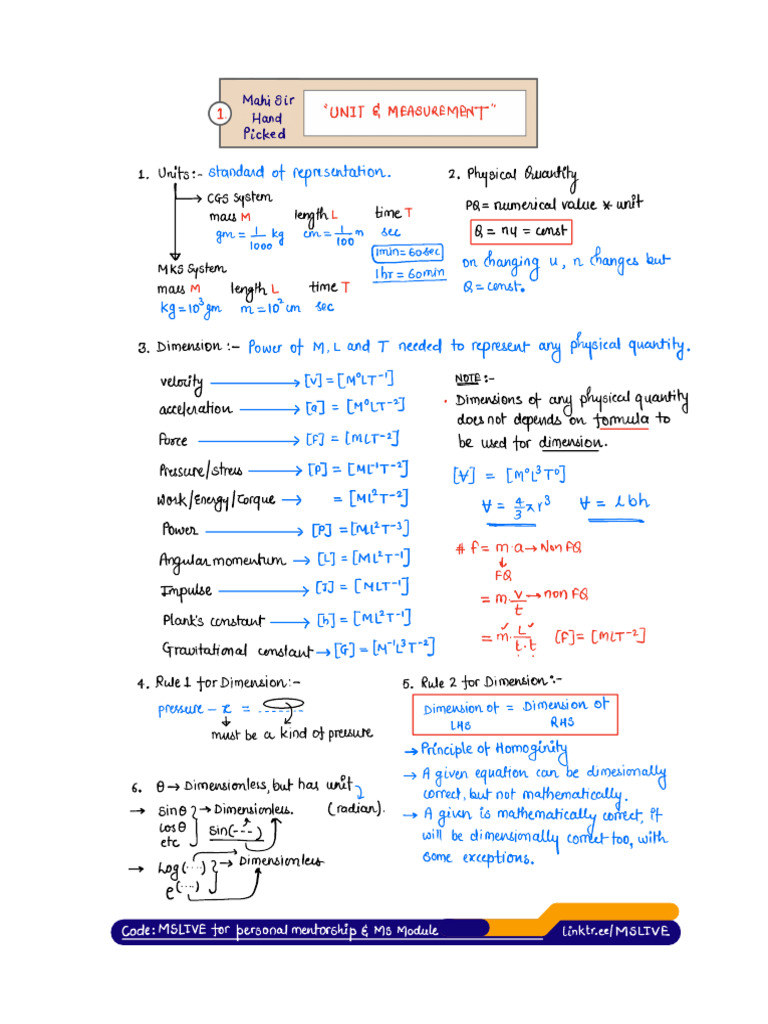 1.
Mahi Sir
Hand
Picked
"UNIT & MEASUREMENT"
1. Units:- standard of representation.
CGS System
mass M length L time T
gm = 1/1000 kg cm = 1/100 m sec
1min = 60sec
1hr = 60min
MKS System
mass M length L time T
kg = 10³ gm m = 10² cm sec
2. Physical Quantity
PQ = numerical value * unit
Q = nu = const
on changing u, n changes but
Q = const.
3. Dimension :- Power of M, L and T needed to represent any physical quantity.
velority → [V] = [M⁰LT⁻¹]
acceleration → [a] = [M⁰LT⁻²]
Force → [F] = [MLT⁻²]
Pressure/stress → [P] = [ML⁻¹T⁻²]
Work/Energy/Torque → = [ML²T⁻²]
Power → [P] = [ML²T⁻³]
Angular momentum → [L] = [ML²T⁻¹]
Impulse → [J] = [MLT⁻¹]
Plank's constant → [h] = [ML²T⁻¹]
Gravitational constant → [G] = [M⁻¹L³T⁻²]
NOTE :-
• Dimensions of any physical quantity
does not depends on formula to
be used for dimension.
[V] = [M⁰L³T⁰]
V = 4/3 π r³ V = lbh
# f = m·a → Non FQ
↓
FQ
= m·v/t → non FQ
= m·L/t·t [F] = [MLT⁻²]
4. Rule 1 for Dimension:-
pressure - x = ........
must be a kind of pressure
5. Rule 2 for Dimension:-
Dimension of LHS = Dimension of RHS
→ Principle of Homoginity
→ A given equation can be dimesionally
correct, but not mathematically.
→ A given is mathematically correct, it
will be dimensionally correct too, with
some exceptions.
6. θ → Dimensionless, but has unit
(radian).
→ sinθ → Dimensionless.
cosθ
etc sin(---)
→ Log(....) → Dimensionless
e^(....)
Code: MSLIVE for personal mentorship & MS Module
linktr.ee/MSLIVE